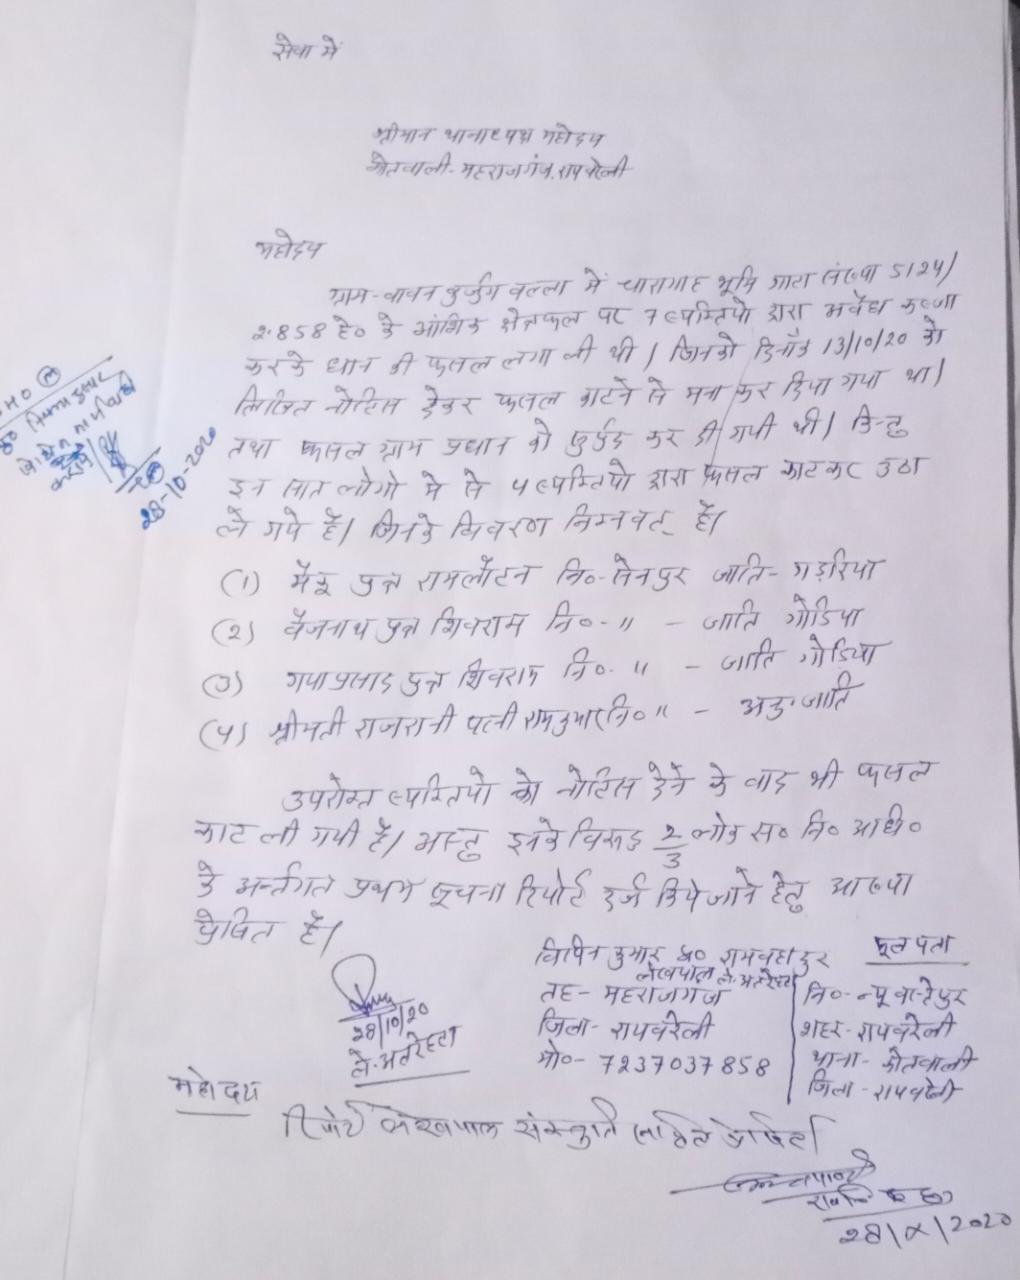 सेवा में
श्रीमान थानाध्यक्ष महोदय
कोतवाली-महराजगंज, रायबरेली
महोदय
ग्राम-बावन बुर्जुग बल्ला में चारागाह भूमि गाटा संख्या 5124/
2.858 हे० के आंशिक क्षेत्रफल पर 7 व्यक्तियो द्वारा अवैध कब्जा
करके धान की फसल लगा ली थी। जिनको दिनाँक 13/10/20 को
लिखित नोटिस देकर फसल काटने से मना कर दिया गया था।
तथा फसल ग्राम प्रधान को सुर्पुद कर दी गयी थी। किन्तु
इन सात लोगो मे से 4 व्यक्तियो द्वारा फसल काटकर उठा
ले गये है। जिनके विवरण निम्नवत् है।
(1) मैकू पुत्र रामलौटन नि०-सेनपुर जाति- गड़रिया
(2) बैजनाथ पुत्र शिवराम नि०-〃 - जाति गोडिया
(3) गयाप्रसाद पुत्र शिवराम नि०-〃 - जाति गोडिया
(4) श्रीमती राजरानी पत्नी रामकुमार नि०〃 - अनु०जाति
उपरोक्त व्यक्तियो को नोटिस देने के बाद भी फसल
काट ली गयी है। अस्तु इनके विरूद्ध 2/3 लोक स० नि० अधि०
के अर्न्तगत प्रथम सूचना रिपोर्ट दर्ज किये जाने हेतु आख्या
प्रेषित है।
28/10/20
ले०-अतरेहटा
विपिन कुमार S/o रामबहादुर
लेखपाल ले०-अतरेहटा
तह०- महराजगंज
जिला- रायबरेली
मो०- 7237037858
मूल पता
नि०- न्यू
शहर- रायबरेली
थाना- कोतवाली
जिला- रायबरेली
महोदय
रिपोर्ट लेखपाल संस्तुति सहित प्रेषित।
28/X/2020
28-10-2020